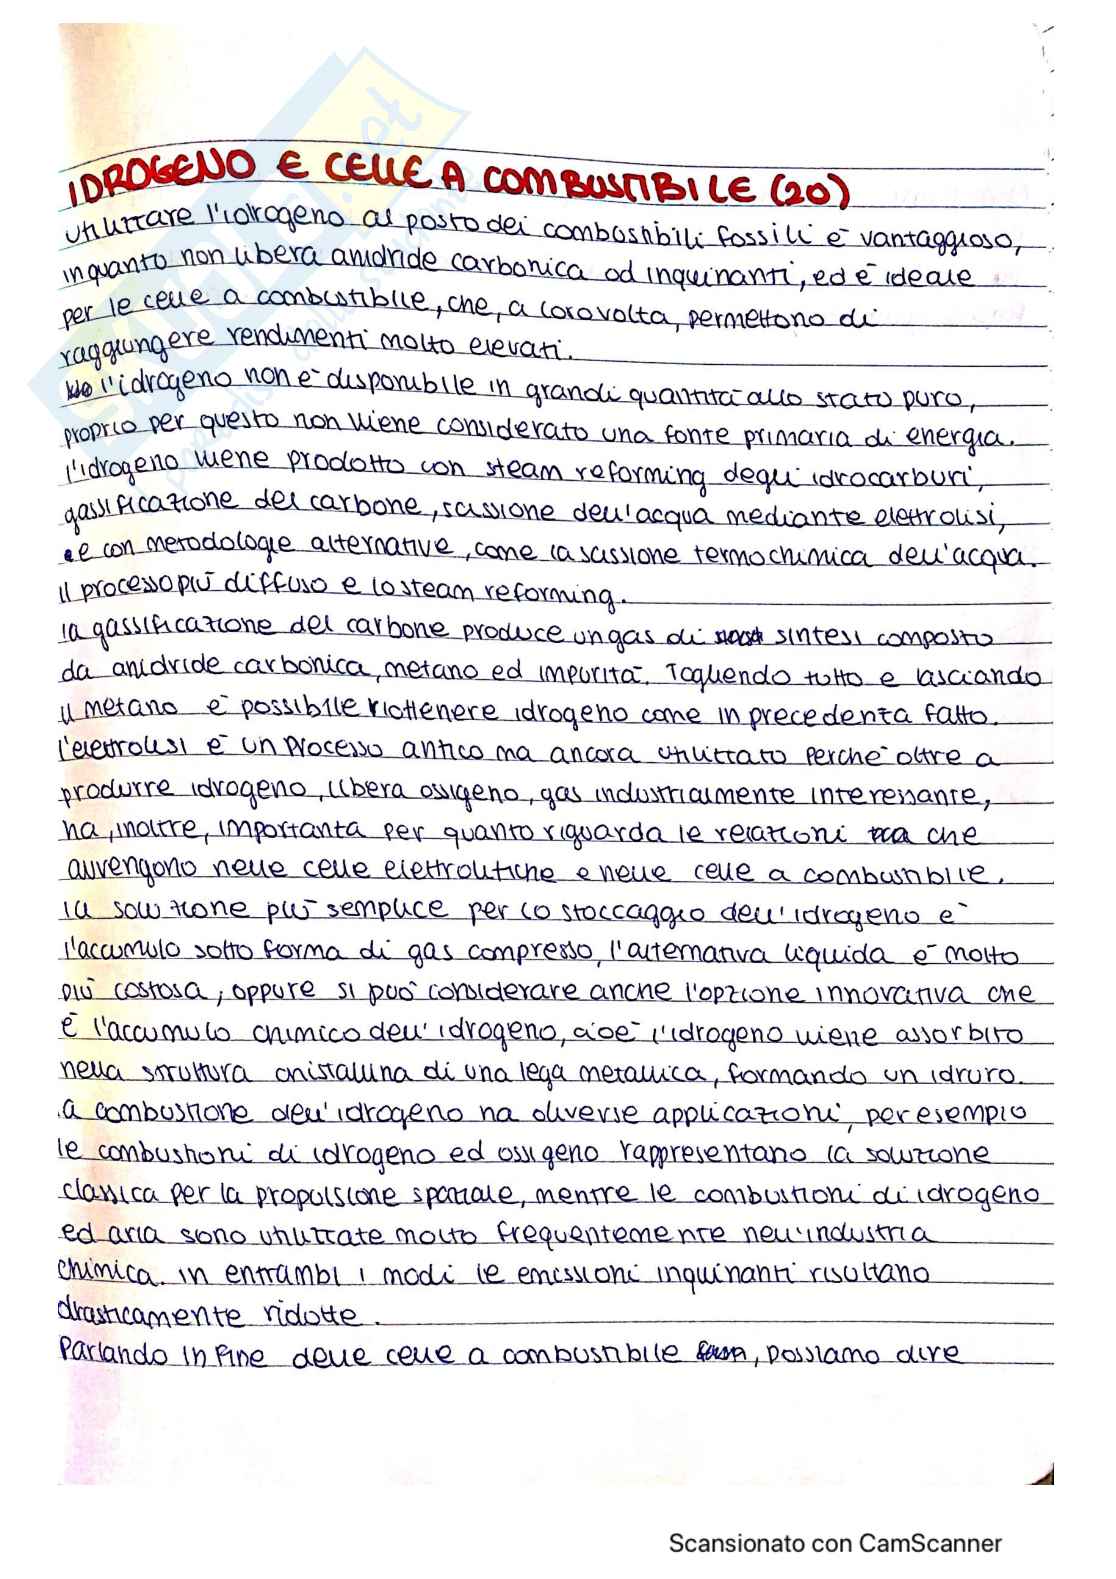 IDROGENO E CELLE A COMBUSTIBILE (20)
utilizzare l'idrogeno al posto dei combustibili fossili è vantaggioso,
in quanto non libera anidride carbonica od inquinanti, ed è ideale
per le celle a combustibile, che, a loro volta, permettono di
raggiungere rendimenti molto elevati.
l'idrogeno non è disponibile in grandi quantità allo stato puro,
proprio per questo non viene considerato una fonte primaria di energia.
l'idrogeno viene prodotto con steam reforming degli idrocarburi,
gassificazione del carbone, scissione dell'acqua mediante elettrolisi,
e con metodologie alternative, come la scissione termochimica dell'acqua.
il processo più diffuso e lo steam reforming.
la gassificazione del carbone produce un gas di sintesi composto
da anidride carbonica, metano ed impurità. Togliendo tutto e lasciando
il metano è possibile riottenere idrogeno come in precedenza fatto.
l'elettrolisi è un processo antico ma ancora utilizzato perché oltre a
produrre idrogeno, libera ossigeno, gas industrialmente interessante,
ha, inoltre, importanza per quanto riguarda le reazioni che
avvengono nelle celle elettrolitiche e nelle celle a combustibile.
la soluzione più semplice per lo stoccaggio dell'idrogeno è
l'accumulo sotto forma di gas compresso, l'alternativa liquida è molto
più costosa, oppure si può considerare anche l'opzione innovativa che
è l'accumulo chimico dell'idrogeno, cioè l'idrogeno viene assorbito
nella struttura cristallina di una lega metallica, formando un idruro.
a combustione dell'idrogeno ha diverse applicazioni, per esempio
le combustioni di idrogeno ed ossigeno rappresentano la soluzione
classica per la propulsione spaziale, mentre le combustioni di idrogeno
ed aria sono utilizzate molto frequentemente nell'industria
chimica. in entrambi i modi le emissioni inquinanti risultano
drasticamente ridotte.
Parlando in fine delle celle a combustibile, possiamo dire
Scansionato con CamScanner